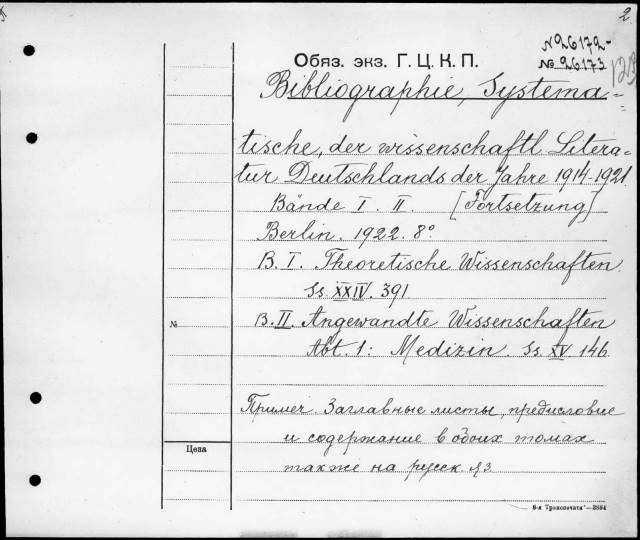 2
№26172-
Обяз. экз. Г. Ц. К. П.
№ 26173
Bibliographie, Systema=
tische, der wissenschaftl. Litera=
tur Deutschlands der Jahre 1914-1921.
Bände I. II. [Fortsetzung]
Berlin. 1922. 8°
B. I. Theoretische Wissenschaften.
Ss. XXIV. 391.
№
B. II. Angewandte Wissenschaften
Abt. 1: Medizin. Ss. XV 146.
Примеч. Заглавные листы, предисловие
и содержание в обоих томах
Цена
также на русск. яз.
8-я Транспечати—3884